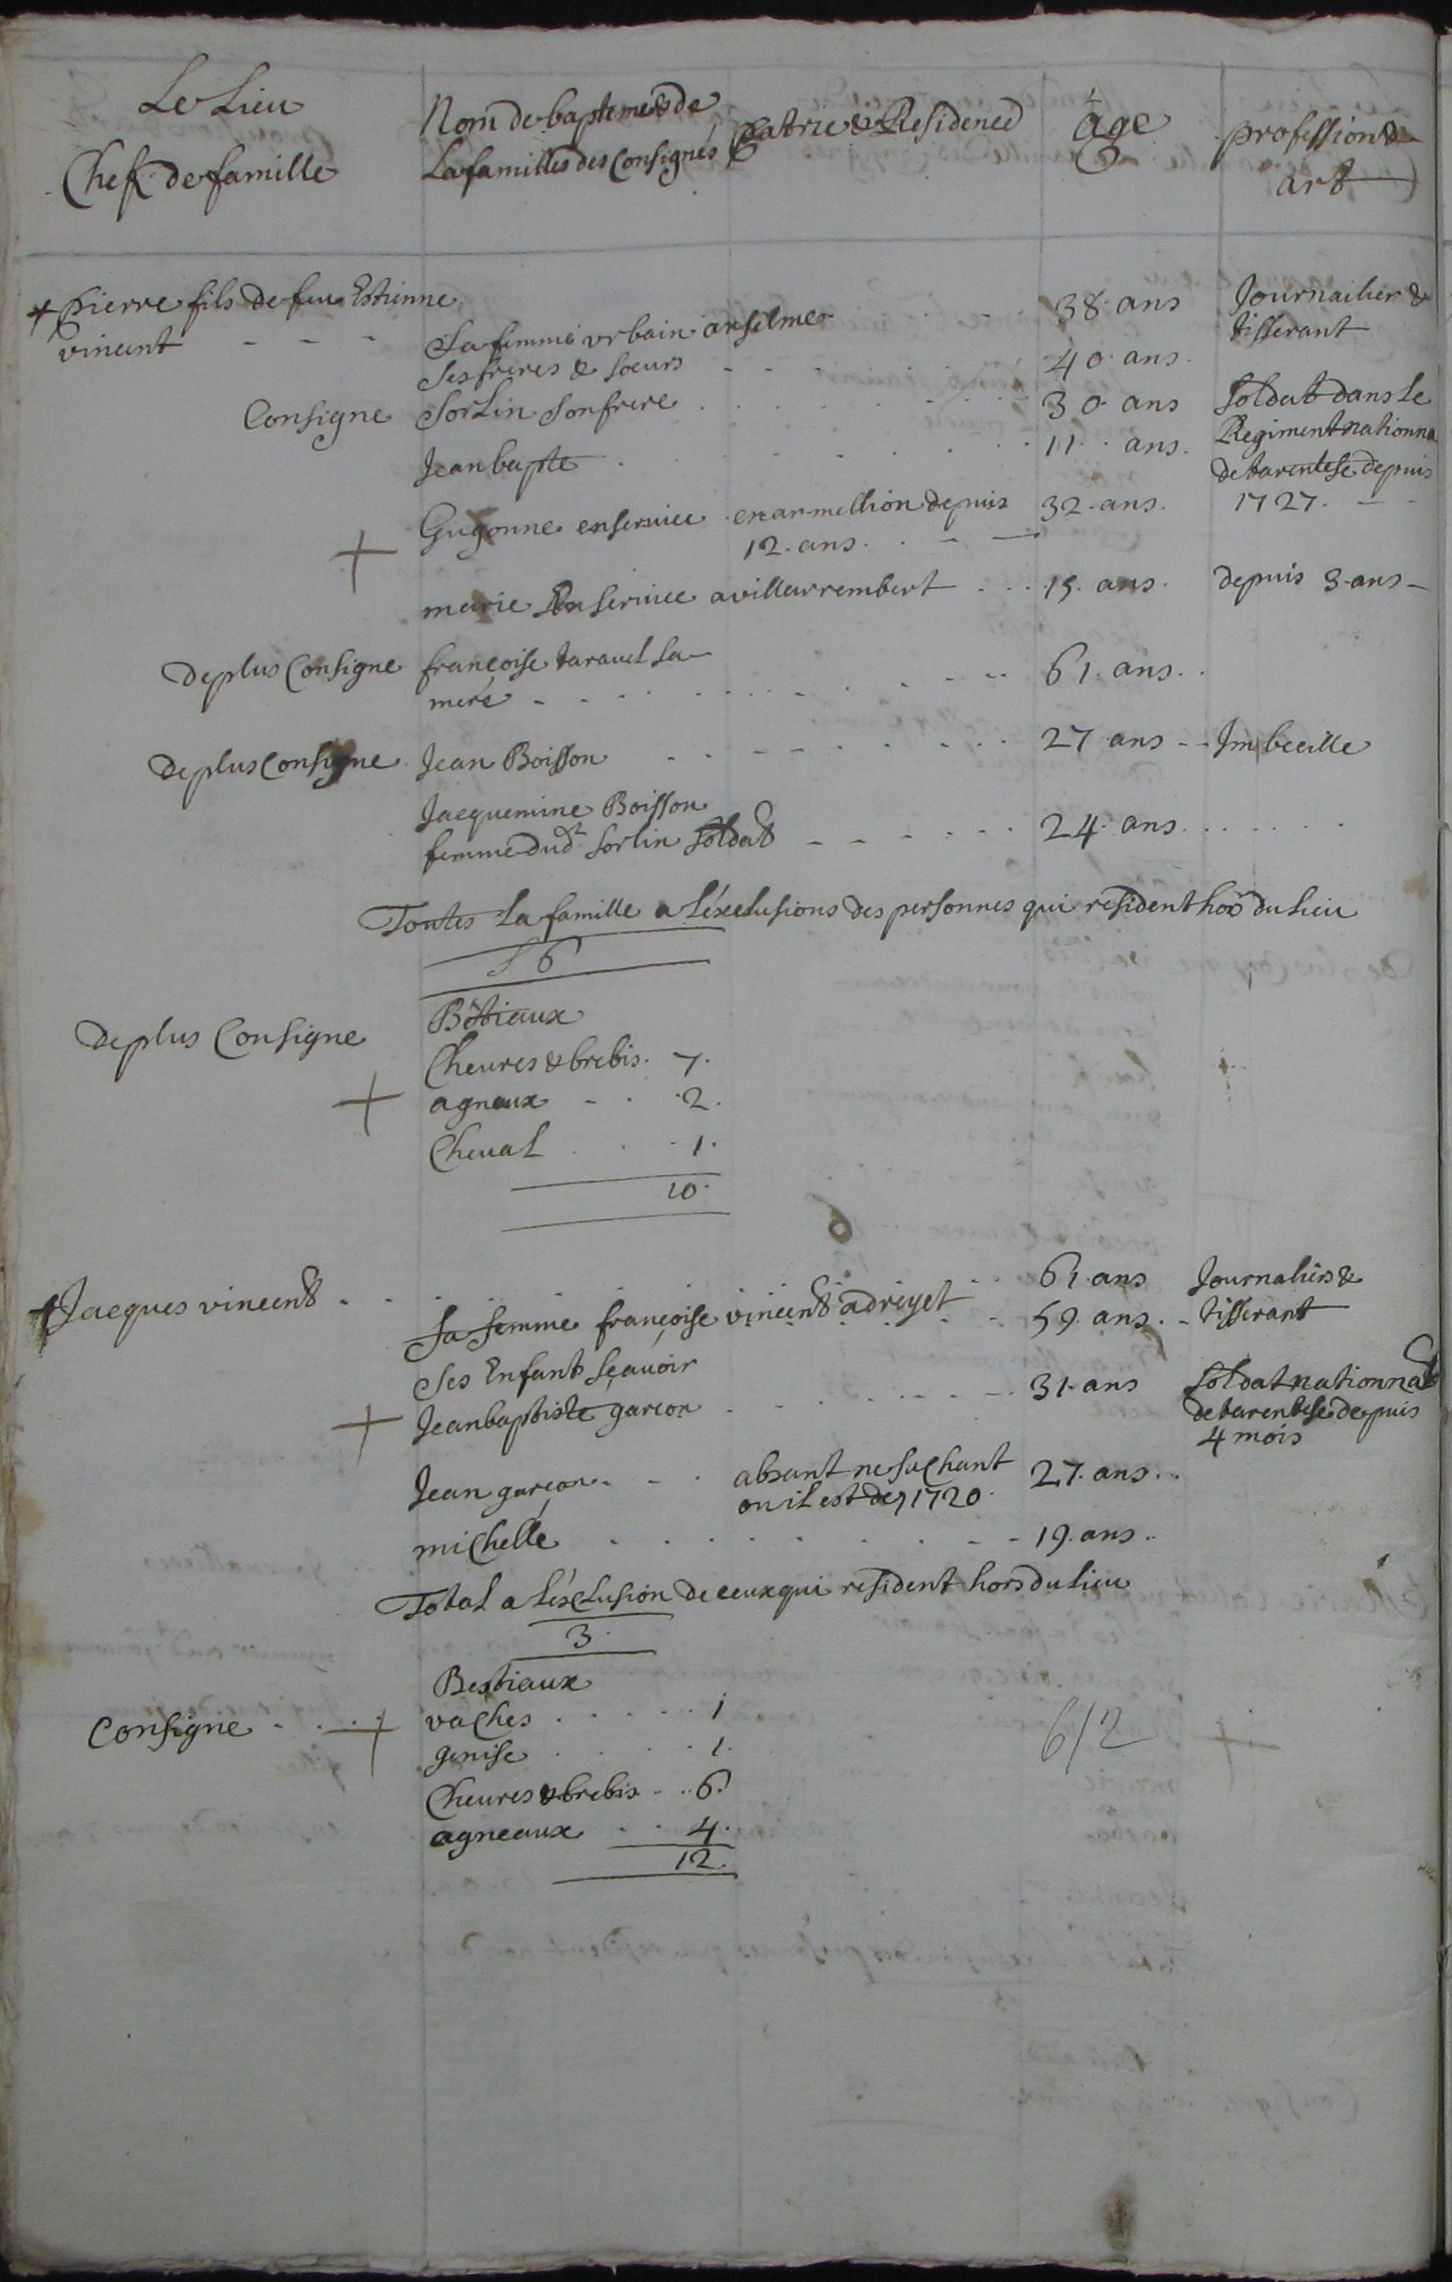 Le Lieu
Chef de famille
Nom de baptemes de
La familles des Consignés
patrie & Residence
age
profession &
art
Pierre fils de feu Estienne
vincent - - -
38. ans
Journailier &
tisserant
Sa femme urbain anselmer
40. ans.
Ses freres & soeurs - -
Consigne Sorlin son frere . . . . 30 ans
Soldat dans le
Regiment nationna
de tarentese depuis
1727. - -
Jean bapte . . . . 11. ans.
+ Gugonne en service en armellion depuis 32. ans.
12. ans. . - -
marie en service a villarrembert . . . 15. ans. depuis 3. ans -
De plus Consigne francoise taravel sa
mere - . . . . 61. ans. .
De plus Consigne Jean Boisson . . . . 27 ans - - Imbecille
Jacquemine Boisson
femme dud.t Sorlin soldat - - - . . . 24. ans. . . . . .
Toutes la famille a l'éxclusions des personnes qui resident hor du lieu
6
De plus Consigne
Bêtiaux
Cheures & brebis. 7.
+ agneaux - . . 2.
Cheual . . . 1.
10.
Jacques vincent - . . . . 61. ans
Journaliers &
tisserant
Sa femme françoise vincent adreyet - 59. ans. -
Ses Enfant sçauoir
+ Jean baptiste garcon - . . . . 31. ans
Soldat nationnal
de tarentese depuis
4 mois
Jean garçon - - . absant ne sachant 27. ans. .
ou il est de 1720.
michelle . . . . - 19. ans. .
Total a l'exclusion de ceux qui resident hors du lieu
3.
Bestiaux
Consigne - . . + vaches . . . . . 1
genise . . . . 1.
Cheures & brebis - . . 6.
agneaux - . . 4.
12.
612